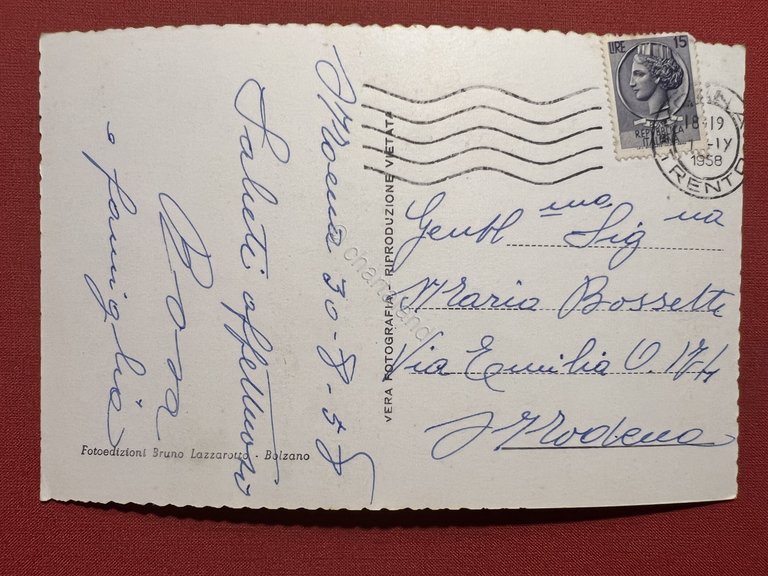 Moena 30-8-58
Saluti affettuosi
Rosa
e famiglia
Fotoedizioni Bruno Lazzarotto - Bolzano
VERA FOTOGRAFIA RIPRODUZIONE VIETATA
LIRE 15
REPUBBLICA
ITALIANA
18-19
1-IX
1958
TRENTO
Gentl ma Sig na
Maria Bossetti
Via Emilia O. 174
Modena